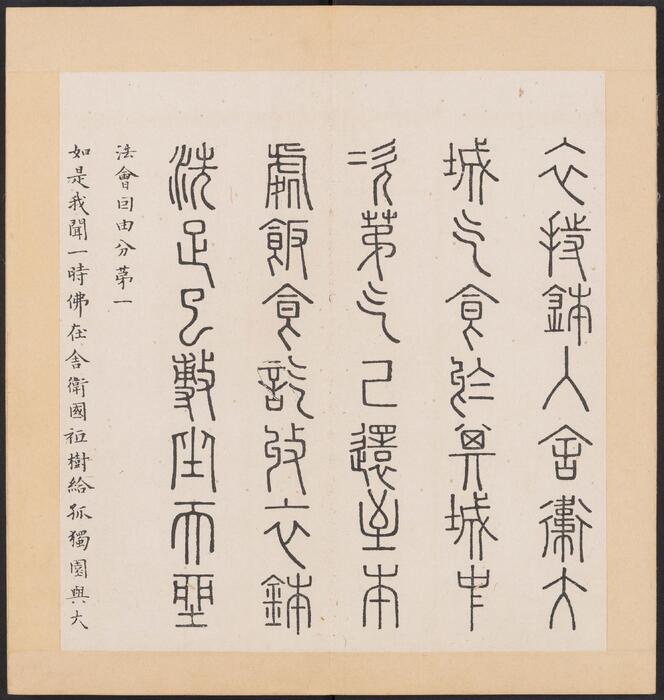 衣持鉢入舍衛大
城乞食於其城中
次第乞已還至本
處飯食訖收衣鉢
洗足已敷坐而坐
法會囙由分第一
如是我聞一時佛在舍衛國祇樹給孤獨園與大